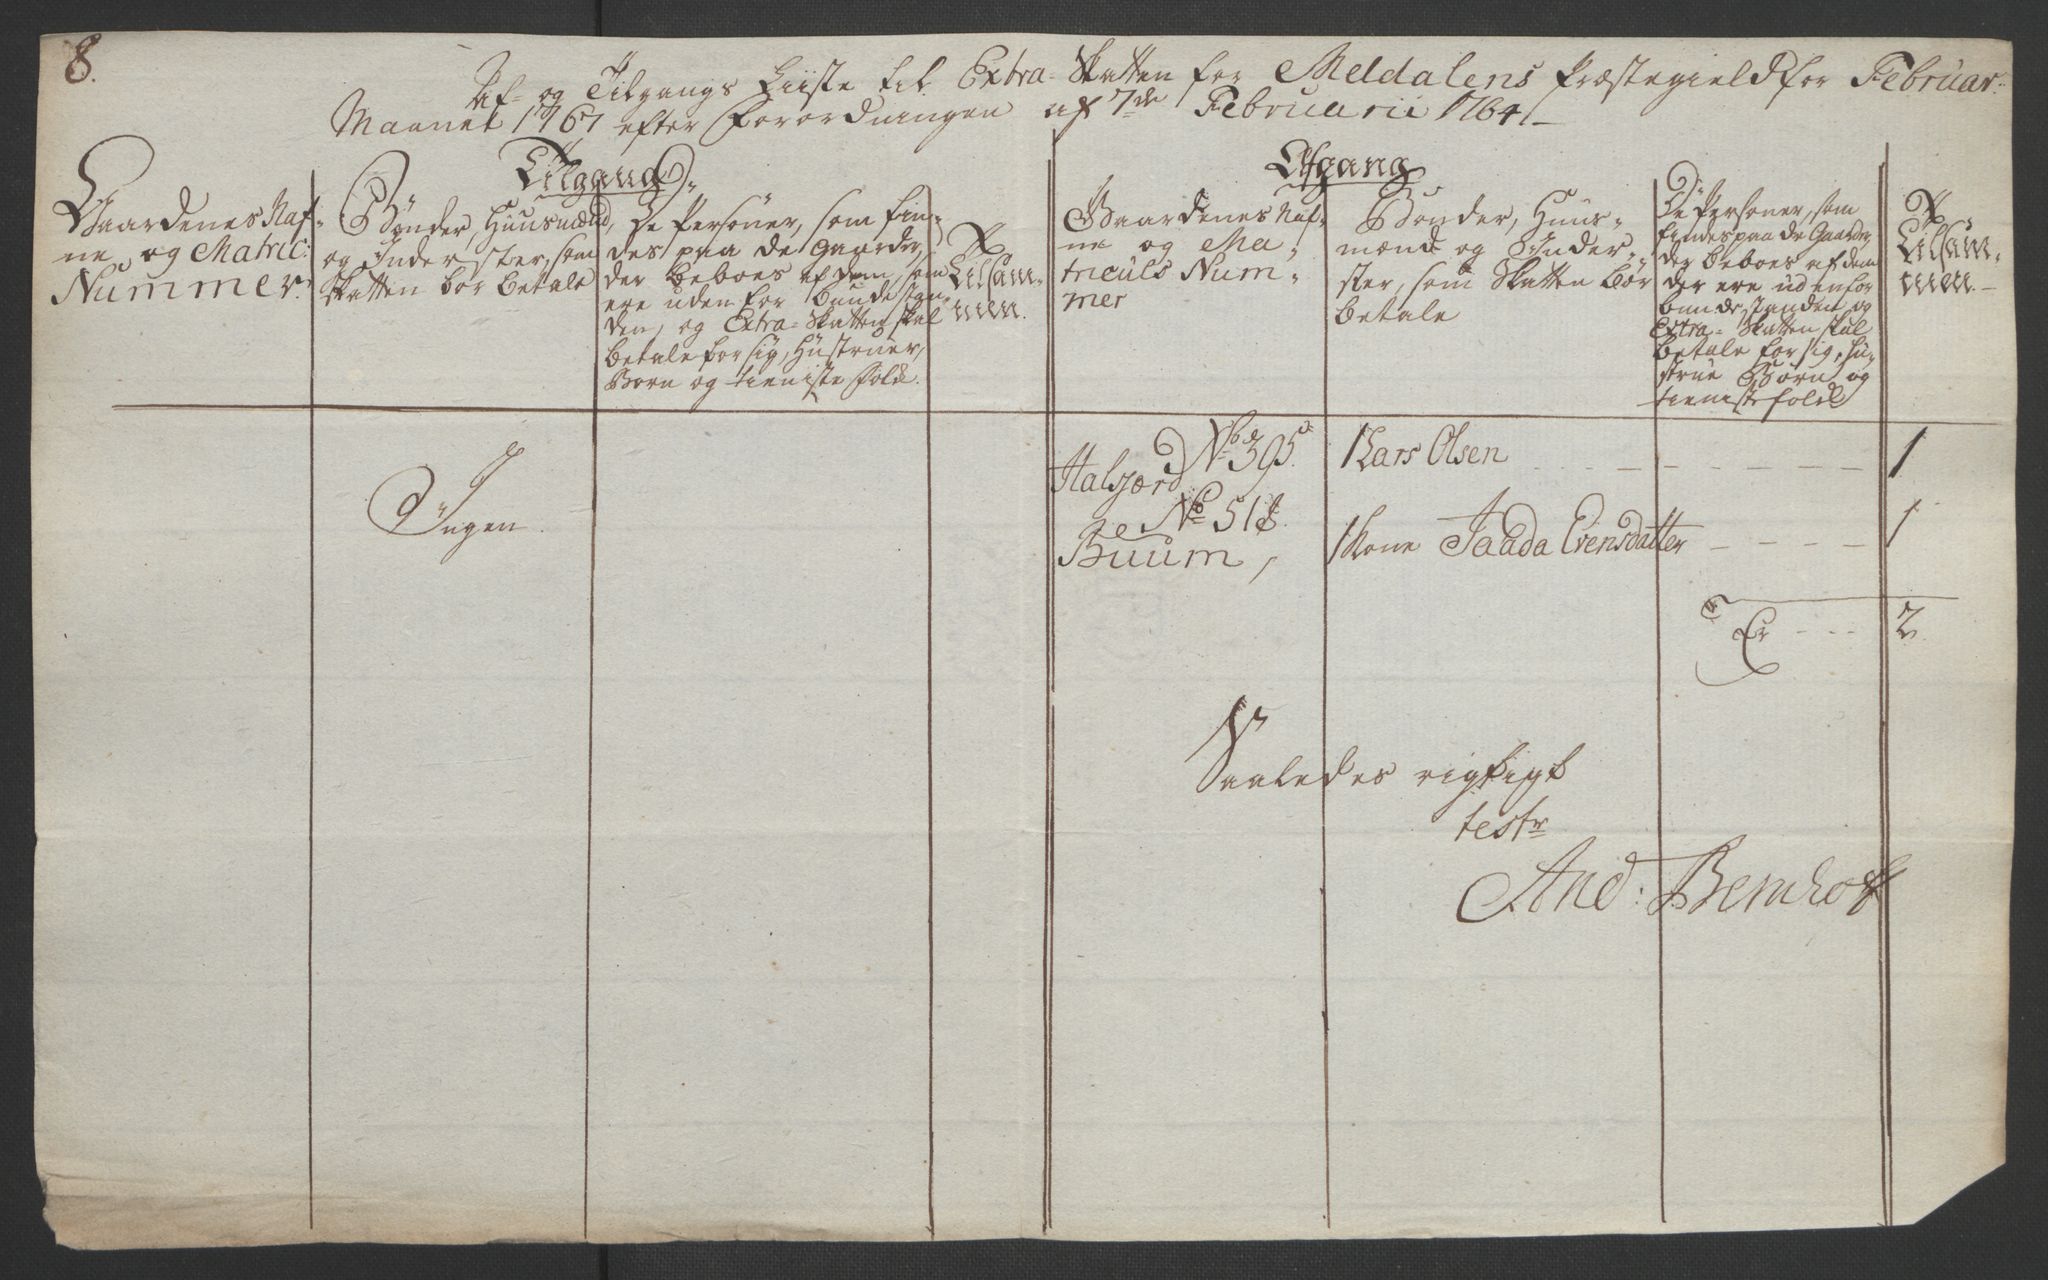 8.
Af- og Tilgangs Liiste til Extra-Skatten for Meldalens Præstegield for Februar:
Maanet 1767 efter Forordningen af 7de Februarii 1764
Tilgang
Gaardenes Naf-
ne og Matric:
Nummer.
Bönder, Huusmænd,
og Inderster, som
skatten bör betale
De Persöner, som fin-
des paa de Gaarder,
der beboes af dem, som
ere uden for bunde stan-
den, og Extra-Skatten skal
betale for sig, Hustruer,
Born og tieniste folck.
Tilsam-
men.
Afgang
Gaardenes Naf-
ne og Ma-
triculs Num-
mer
Bonder, Huus-
mænd og Inder-
ster, som Skatten bör
betale
De Persöner, som
findes paa de Gaarder,
der beboes af dem
der ere udenfor
bunde standen og
Extra-Skatten skal
betale for sig, Hu-
strue Börn og
tienistefolck
Tilsam-
men.
Ingen.
No 395.
Halsjord
1 Lars Olsen
1
No 518.
Buum,
1 Kone Evensdatter
1
Er
2
Saaledes rigtigt
test
And: Bernhoft